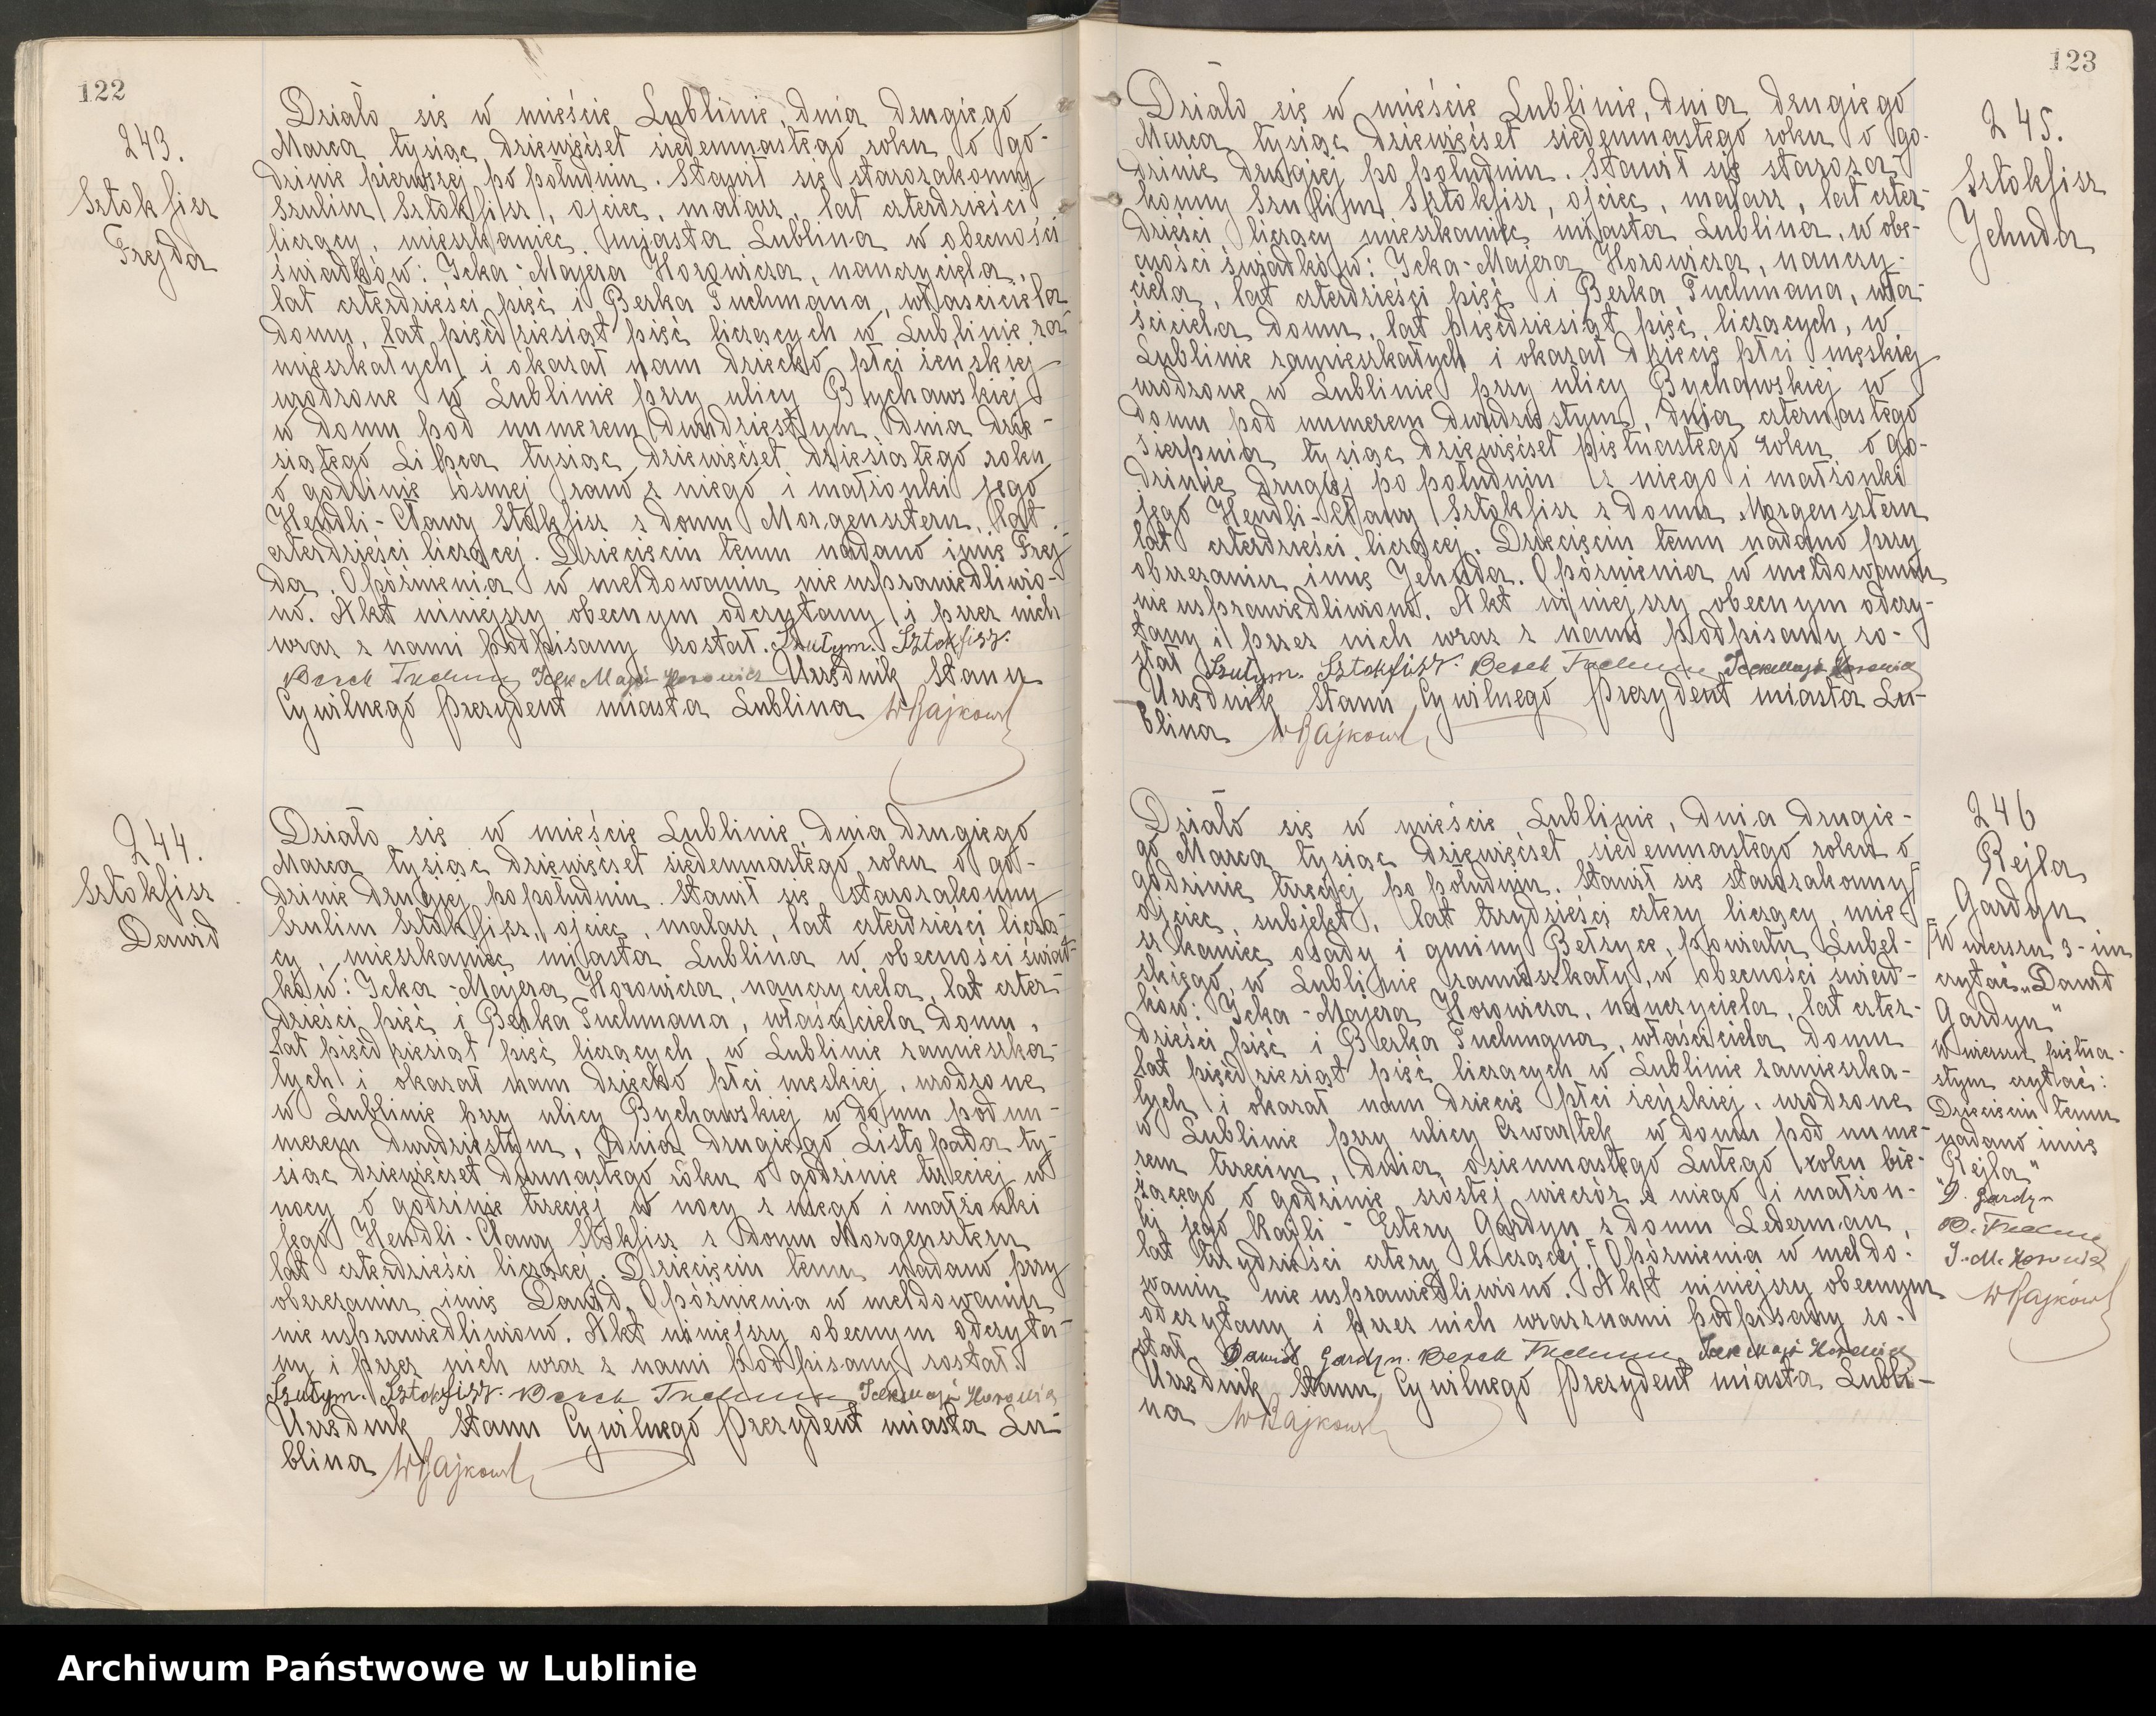 122
243.
Sztokfisz
Frejda
Działo się w mieście Lublinie, dnia drugiego
Marca tysiąc dziewięćset siedemnastego roku o go-
dzinie pierwszej po południu. Stawił się starozakonny
Szulim Sztokfisz, ojciec, malarz, lat czterdzieści
liczący, mieszkaniec miasta Lublina w obecności
świadków: Icka-Majera Horowicza, nauczyciela,
lat czterdzieści pięć i Berka Tuchmana, właściciela
domu, lat pięćdziesiąt pięć liczących w Lublinie za-
mieszkałych i okazał nam dziecko płci żeńskiej
urodzone w Lublinie przy ulicy Bychawskiej
w domu pod numerem dwudziestym, dnia dzie-
siątego Lipca tysiąc dziewięćset dziesiątego roku
o godzinie ósmej rano z niego i małżonki jego
Hendli-Chawy Stokfisz z domu Morgensztern, lat
czterdzieści liczącej. Dziecięciu temu nadano imię Frej-
da. Opóźnienia w meldowaniu nie usprawiedliwio-
no. Akt niniejszy obecnym odczytany i przez nich
wraz z nami podpisany został. Szulym. Sztokfisz.
Berek Tuchman Icek Majer Horowicz Urzędnik Stanu
Cywilnego Prezydent miasta Lublina WBajkowski
244.
Sztokfisz
Dawid
Działo się w mieście Lublinie, dnia drugiego
Marca tysiąc dziewięćset siedemnastego roku o go-
dzinie drugiej po południu. Stawił się starozakonny
Szulim Sztokfisz, ojciec, malarz, lat czterdzieści liczą-
cy, mieszkaniec miasta Lublina w obecności świad-
ków: Icka-Majera Horowicza, nauczyciela, lat czter-
dzieści pięć i Berka Tuchmana, właściciela domu,
lat pięćdziesiąt pięć liczących, w Lublinie zamieszka-
łych i okazał nam dziecko płci męskiej, urodzone
w Lublinie przy ulicy Bychawskiej w domu pod nu-
merem dwudziestym, dnia drugiego Listopada ty-
siąc dziewięćset dwunastego roku o godzinie trzeciej w
nocy o godzinie trzeciej w nocy z niego i małżonki
jego Hendli-Chawy Stokfisz z domu Morgensztern
lat czterdzieści liczącej. Dziecięciu temu nadano przy
obrzezaniu imię Dawid. Opóźnienia w meldowaniu
nie usprawiedliwiono. Akt niniejszy obecnym odczyta-
ny i przez nich wraz z nami podpisany został.
Szulym. Sztokfisz. Berek Tuchman Icek Majer Horowicz
Urzędnik Stanu Cywilnego Prezydent miasta Lu-
blina WBajkowski
123
245.
Sztokfisz
Jehuda
Działo się w mieście Lublinie, dnia drugiego
Marca tysiąc dziewięćset siedemnastego roku o go-
dzinie drugiej po południu. Stawił się staroza-
konny Szulim Sztokfisz, ojciec, malarz, lat czter-
dzieści liczący mieszkaniec miasta Lublina, w obe-
cności świadków: Icka-Majera Horowicza, nauczy-
ciela, lat czterdzieści pięć i Berka Tuchmana, wła-
ściciela domu, lat pięćdziesiąt pięć liczących, w
Lublinie zamieszkałych i okazał dziecię płci męskiej
urodzone w Lublinie przy ulicy Bychawskiej w
domu pod numerem dwudziestym, dnia czternastego
Sierpnia tysiąc dziewięćset piętnastego roku o go-
dzinie drugiej po południu z niego i małżonki
jego Hendli-Chawy Sztokfisz z domu Morgensztern
lat czterdzieści liczącej. Dziecięciu temu nadano przy
obrzezaniu imię Jehuda. Opóźnienia w meldowaniu
nie usprawiedliwiono. Akt niniejszy obecnym odczy-
tany i przez nich wraz z nami podpisany zo-
stał Szulym. Sztokfisz. Berek Tuchman Icek Majer Horowicz
Urzędnik Stanu Cywilnego Prezydent miasta Lu-
blina WBajkowski
246
Rejla
Gardyn
W wierszu 3-im
czytać „Dawid
Gardyn"
W wierszu piętna-
stym czytać:
Dziecięciu temu
nadano imię
Rejla"
D. Gardyn
B. Tuchman
I. M. Horowicz
WBajkowski
Działo się w mieście Lublinie, dnia drugie-
go Marca tysiąc dziewięćset siedemnastego roku o
godzinie trzeciej po południu. Stawił się starozakonny
ojciec, subjekt, lat trzydzieści cztery liczący, mie-
szkaniec osady i gminy Bełżyce, powiatu Lubel-
skiego, w Lublinie zamieszkały, w obecności świad-
ków: Icka-Majera Horowicza, nauczyciela, lat czter-
dzieści pięć i Berka Tuchmana, właściciela domu
lat pięćdziesiąt pięć liczących w Lublinie zamieszka-
łych i okazał nam dziecię płci żeńskiej, urodzone
w Lublinie przy ulicy Czwartek w domu pod nume-
rem trzecim, dnia osiemnastego Lutego roku bie-
żącego o godzinie szóstej wieczór z niego i małżon-
ki jego Kajli-Estery Gardyn z domu Lederman,
lat trzydzieści cztery liczącej. Opóźnienia w meldo-
waniu nie usprawiedliwiono. Akt niniejszy obecnym
odczytany i przez nich wraz z nami podpisany zo-
stał Dawid Gardyn. Berek Tuchman Icek Majer Horowicz
Urzędnik Stanu Cywilnego Prezydent miasta Lubli-
na WBajkowski
Archiwum Państwowe w Lublinie